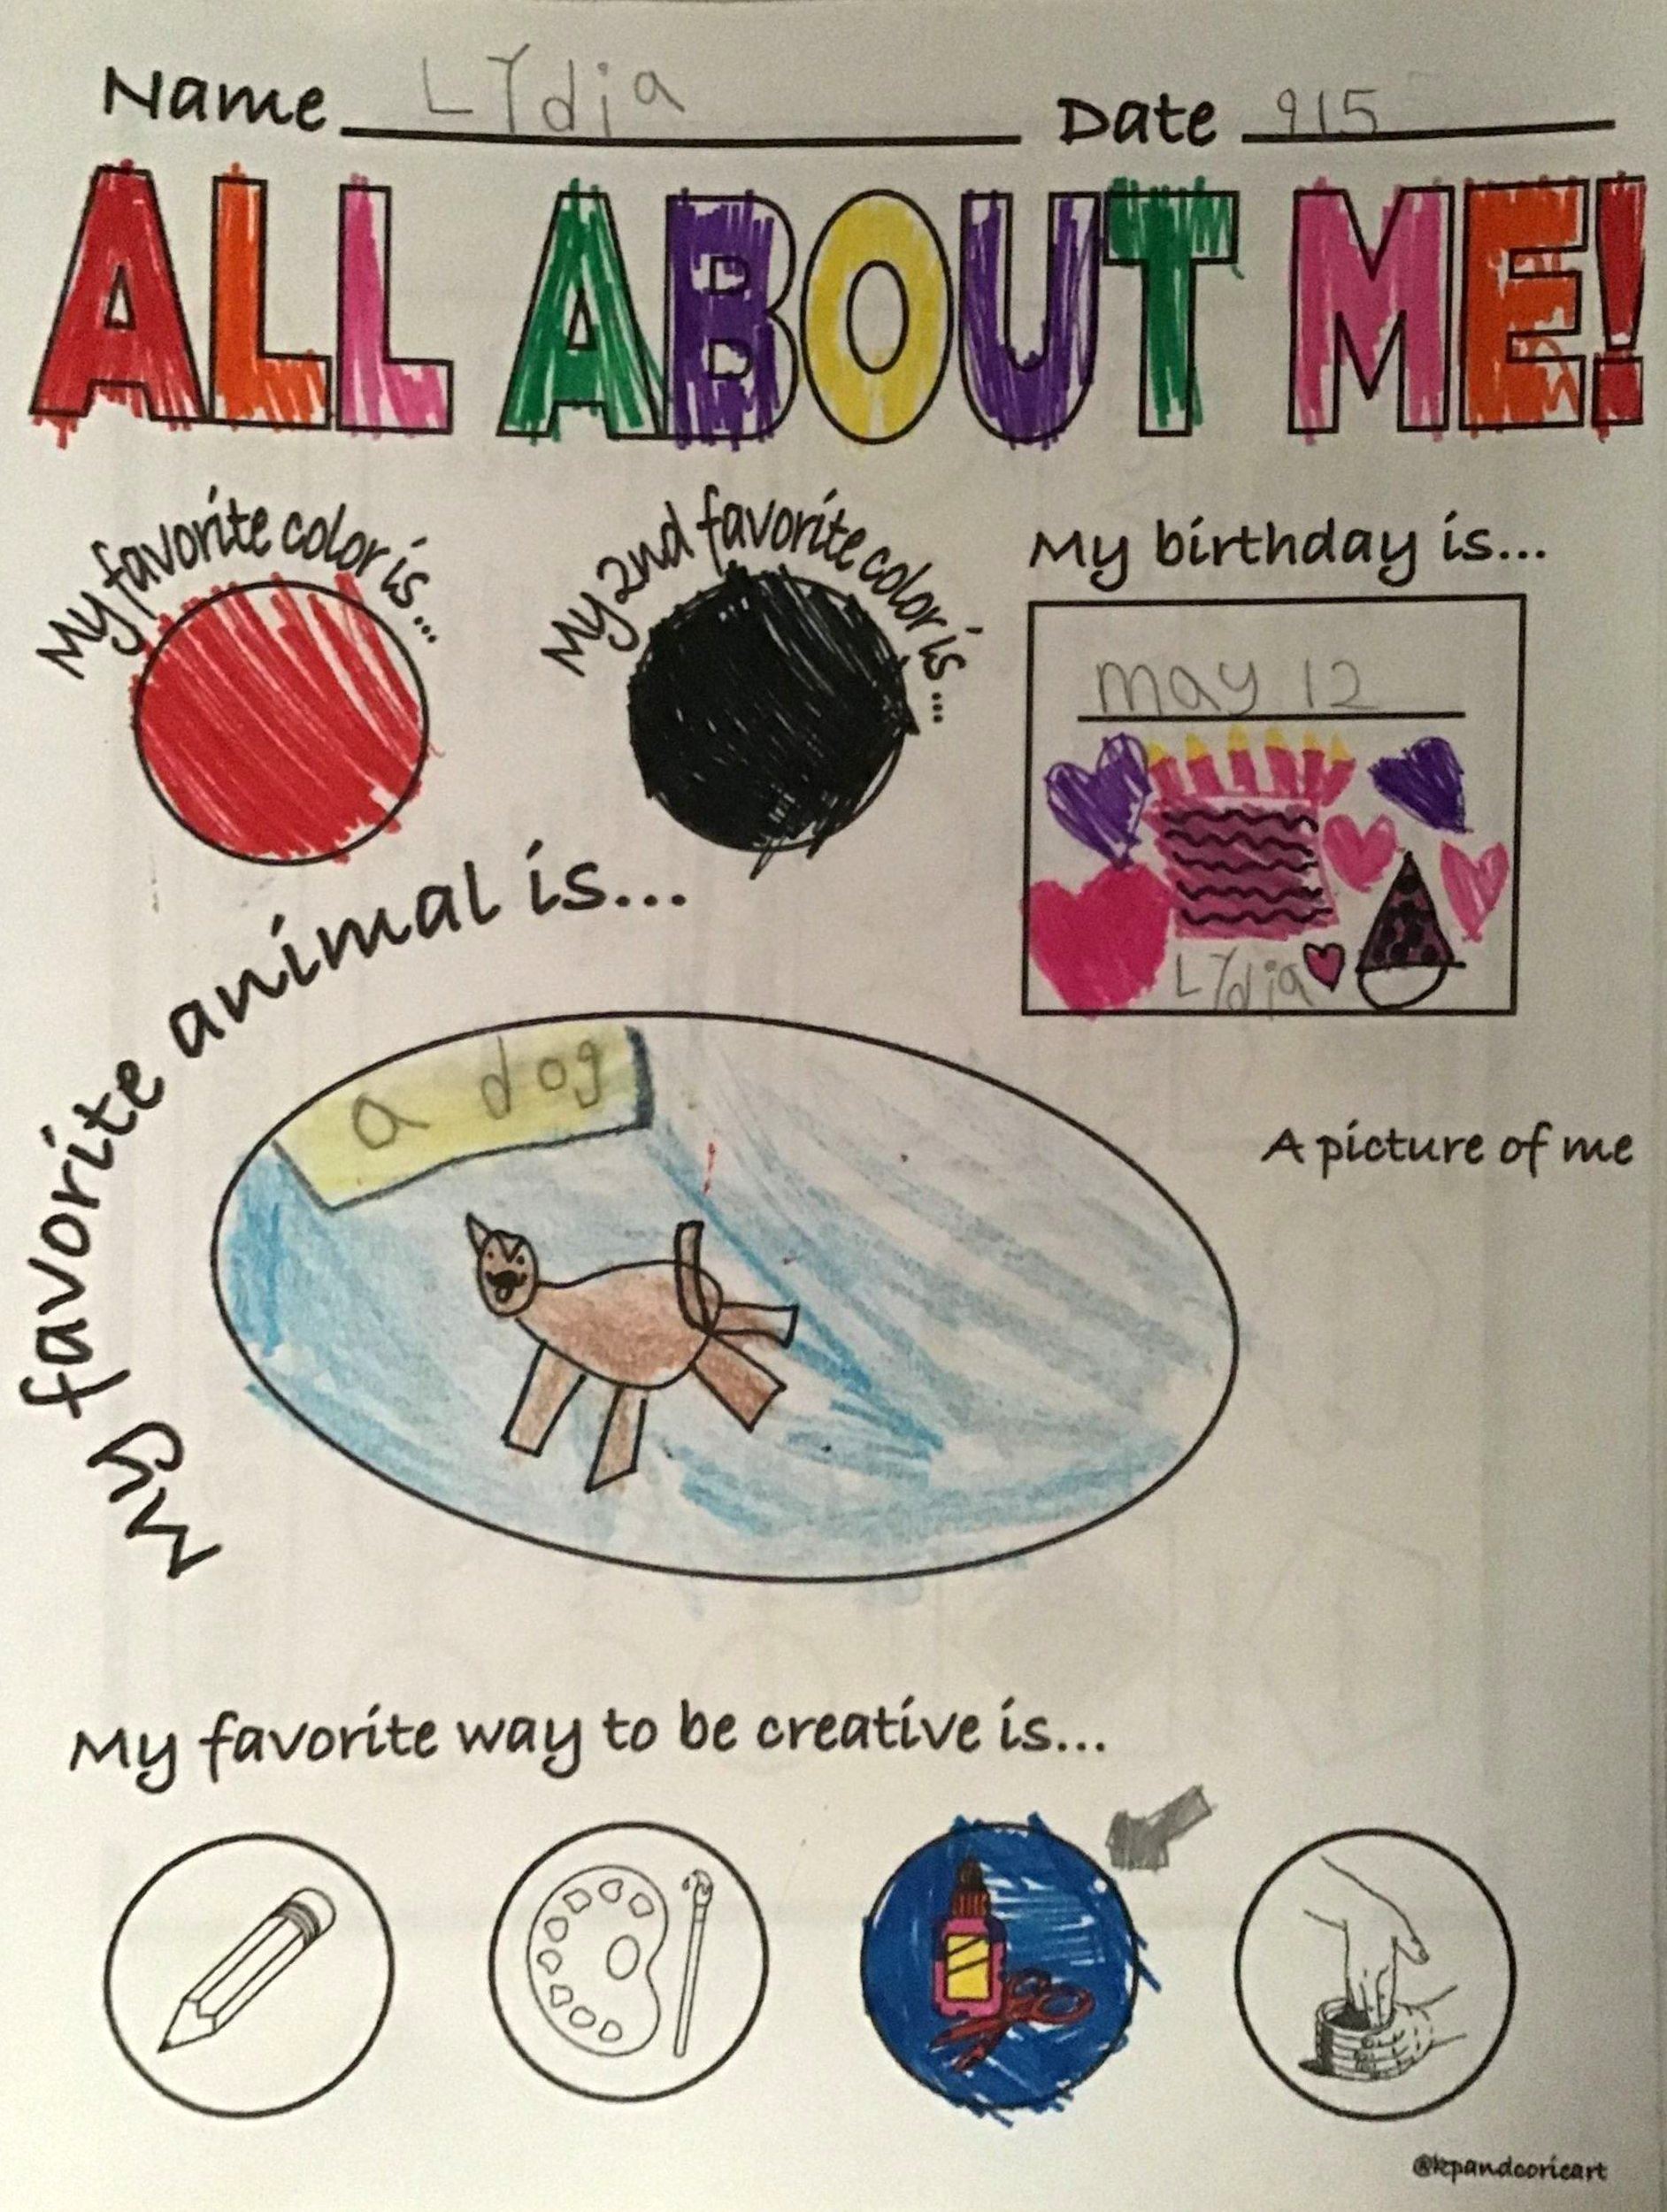 Name LYdia Date 915
ALL ABOUT ME!
My favorite color is...
My 2nd favorite color is...
My birthday is...
may 12
LYdia
My favorite animal is...
a dog
A picture of me
My favorite way to be creative is...
@kpandcorieart